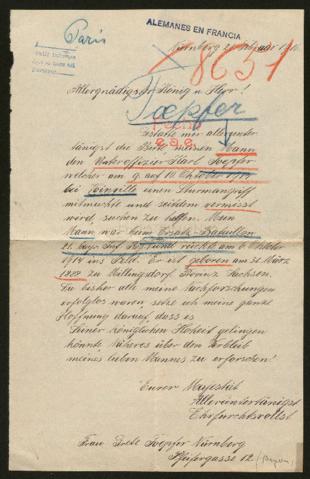 Paris
ALEMANES EN FRANCIA
Nürnberg
8651
Allergnädigster König u. Herr!
Toepfer
Gestatte mir alleruntertänigst die Bitte meinen Mann
den Unteroffizier Karl Toepfer
welcher am 9. auf 10. Oktober 1914
bei Joinville einen Sturmangriff
mitmachte und seitdem vermisst
wird, suchen zu helfen. Mein
Mann war beim Ersatz-Bataillon
21. bayr. Inf. Regiment rückte am 6. Oktober
1914 ins Feld. Er ist geboren am 31. März
zu Millingsdorf Provinz Sachsen.
Da bisher alle meine Nachforschungen
erfolglos waren, setze ich meine ganze
Hoffnung darauf, dass es
Seiner königlichen Hoheit gelingen
könnte Näheres über den Verbleib
meines lieben Mannes zu erforschen!
Eurer Majestät
Alleruntertänigst
Ehrfurchtsvollst
Frau Toepfer Nürnberg
Pfeifergasse 12 (Bayern)